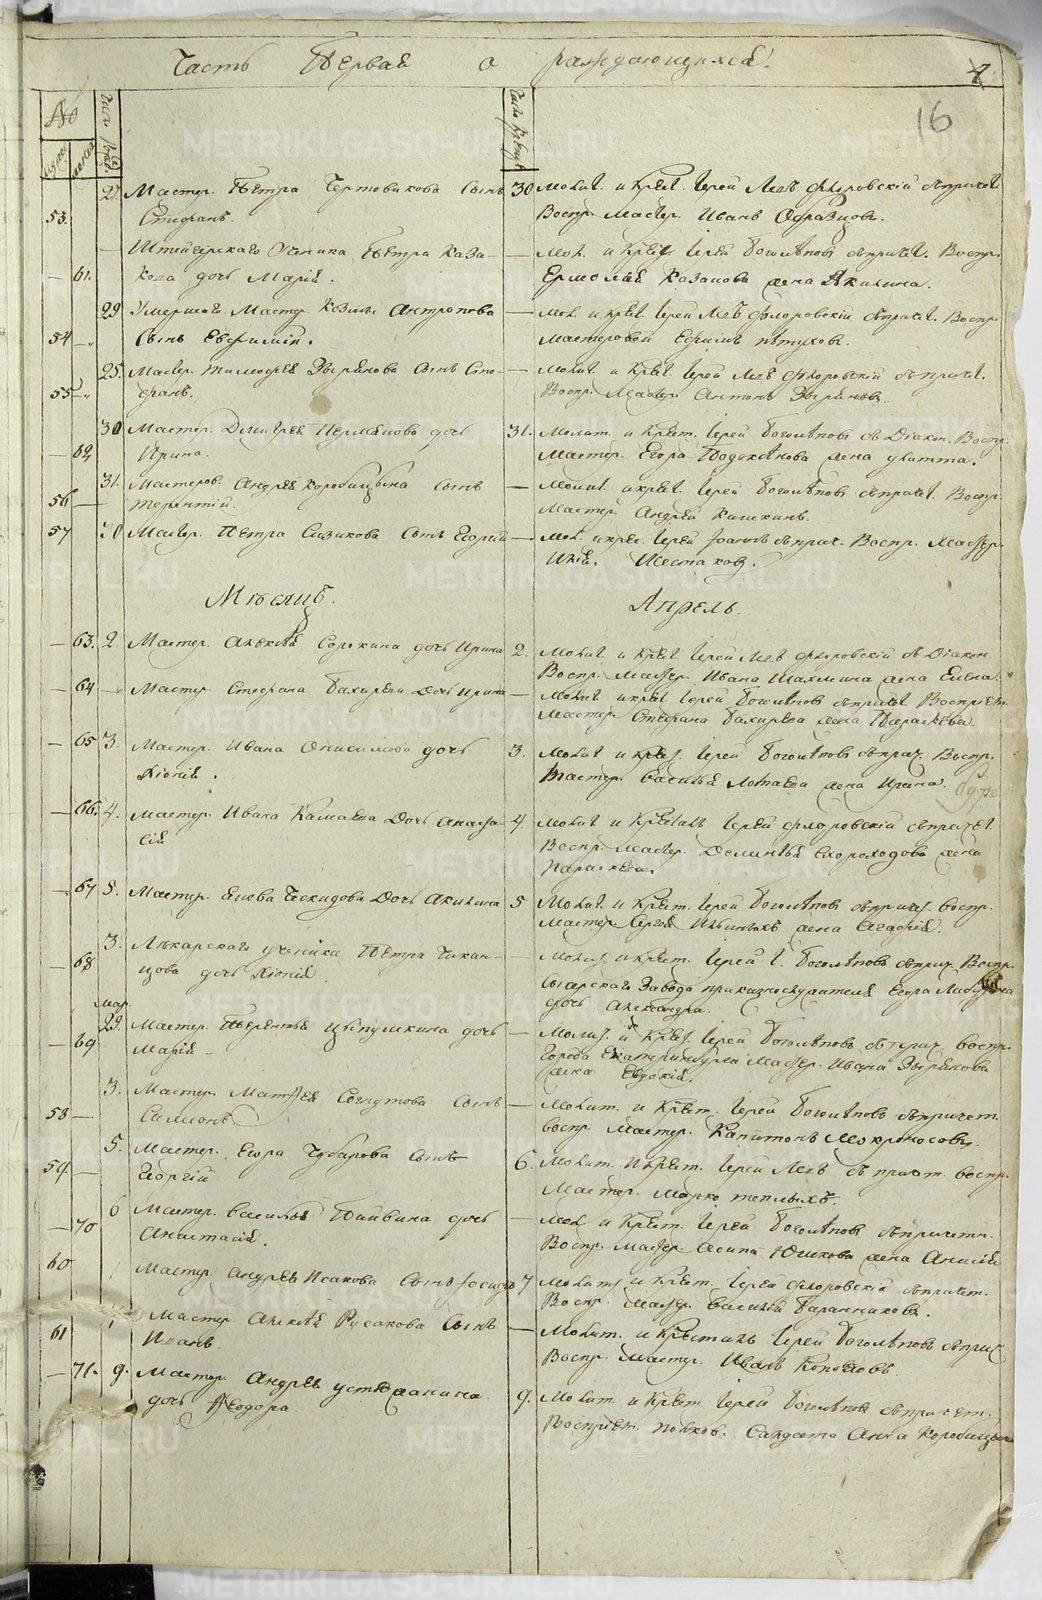 Часть Первая о раждающихся.
16
№
21. Мастер. Петра Чертовикова сынъ
53. Стефанъ.
30 Молит. и Крест. Iерей Левъ Флоровскiй съ причет.
Воспр. Мастер. Иванъ Образцовъ.
Штейгерскаго Ученика Петра Каза-
61. кова дочь Марiя.
— Мол. и Крест. Iерей Боголѣповъ съ причет. Воспр.
Ермолая Казакова жена Акилина.
29 Умершаго Мастер. Козмы Антропова
54 сынъ Евфимiй.
— Мол. и Крест. Iерей Левъ Флоровскiй съ причет. Воспр.
Мастеровой Ефимъ Пѣтуховъ.
25. Мастер. Тимофея Зырянова сынъ Сте-
55 фанъ.
— Молит. и Крест. Iерей Левъ Флоровскiй съ причет.
Воспр. Мастер. Антонъ Зыряновъ.
30 Мастер. Дмитрея Пермякова дочь
62 Ирина.
31. Молит. и Крест. Iерей Боголѣповъ съ Дiакон. Воспр.
Мастер. Егора жена Улитта.
31. Мастеров. Андрея Коробицына сынъ
56 Терентiй.
— Молит. и крест. Iерей Боголѣповъ съ причет. Воспр.
Мастер. Андрей Кишкинъ.
57 30 Мастер. Петра Сизикова сынъ Георгiй
— Мол. и крес. Iерей Iоаннъ съ прич. Воспр. Мастер.
Шестаковъ.
Мѣсяцъ. Апрель.
63. 2. Мастер. Алексея Сорокина дочь Ирина
2. Молит. и Крест. Iерей Левъ Флоровскiй съ Дiакон.
Воспр. Мастер. Ивана Шахмина жена Елена.
64 — Мастер. Стефана Бахирева дочь Ирина
— Молит. и крест. Iерей Боголѣповъ съ причет. Воспрiем.
Мастер. Стефана Бахирева жена Параскева.
65 3. Мастер. Ивана Онисимова дочь
Хiонiя.
3. Молит. и крест. Iерей Боголѣповъ съ прич. Воспр.
Мастер. Василья Лопаева жена Ирина.
66. 4. Мастер. Ивана Камаева дочь Анаста-
сiя
4. Молит. и Крестилъ Iерей Флоровскiй съ причет.
Воспр. Мастер. Дементья Скороходова жена
Параскева.
67 5. Мастер. Якова Ческидова дочь Акилина
5 Молит. и Крест. Iерей Боголѣповъ съ причет. воспр.
Мастер. Сергея Ильиныхъ жена Агафiя.
3. Лѣкарскаго ученика Петра Чикан-
68 цова дочь Хiонiя
— Молит. и Крест. Iерей I. Боголѣповъ съ прич. Воспр.
Сысерскаго Завода приказнослужителя Егора
дочь Александра.
мар.
29. Мастер. Терентья Цыпушкина дочь
69 Марiя.
— Молит. и Крест. Iерей Боголѣповъ съ прич. Воспр.
Города Екатеринбурга Мастер. Ивана Зырянова
жена Евдокiя.
3. Мастер. Матвея Сочутова сынъ
58 — Симеонъ
— Молит. и Крест. Iерей Боголѣповъ съ причет.
воспр. Мастер. Капитонъ Мокроносовъ.
5. Мастер. Егора Чубарова сынъ
59 — Георгiй
6. Молит. и Крест. Iерей Левъ съ причт. воспр.
Мастер. Марко Теплыхъ.
6 Мастер. Василья Пайвина дочь
70 Анастасiя.
— Мол. и Крест. Iерей Боголѣповъ съ причетн.
Воспр. Мастер. Юшкова жена Анисiя
60 Мастер. Андрея Исакова сынъ Iосифъ
7 Молит. и Крест. Iерей Флоровскiй съ причет.
Воспр. Мастер. Василiй Баранниковъ.
Мастер. Алексея Русакова сынъ
61 Иванъ.
— Молит. и Крестилъ Iерей Боголѣповъ съ прич.
Воспр. Мастер. Иванъ Копыловъ.
71. 9. Мастер. Андрея Устюжанина
дочь Ѳеодора.
9. Молит. и Крест. Iерей Боголѣповъ съ причет.
Воспрiем. полков. Салдата Анна Коробицына